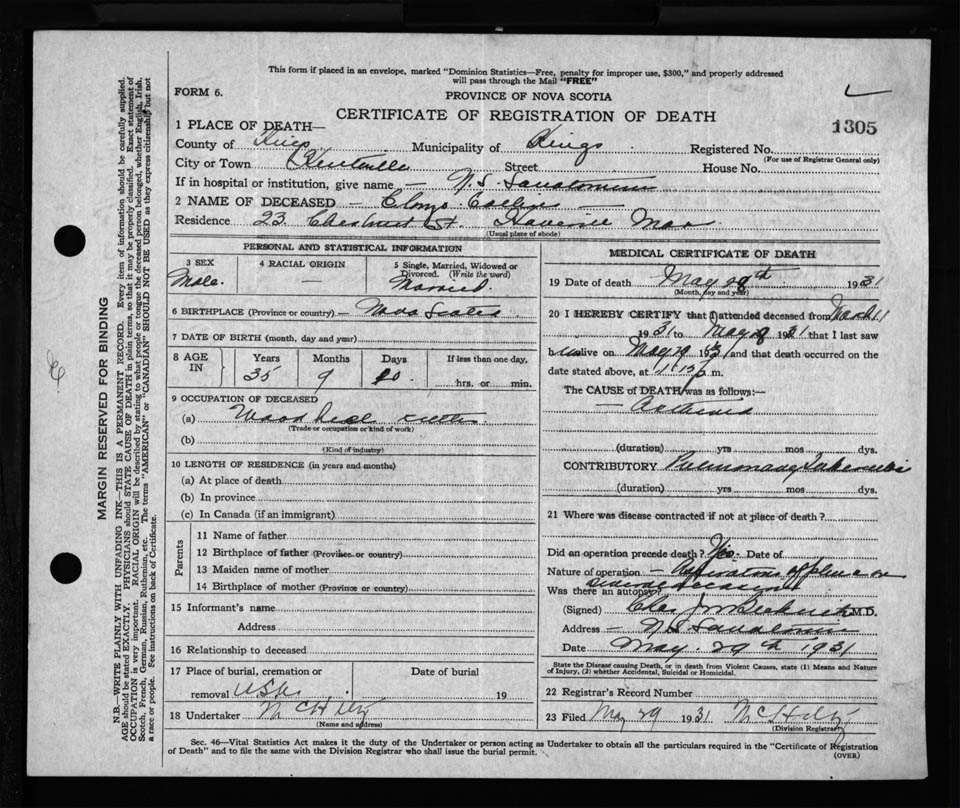 This form if placed in an envelope, marked "Dominion Statistics—Free, penalty for improper use, $300," and properly addressed
will pass through the Mail "FREE"
FORM 6.
PROVINCE OF NOVA SCOTIA
CERTIFICATE OF REGISTRATION OF DEATH
1305
1 PLACE OF DEATH—
County of Kings Municipality of Kings Registered No.
(For use of Registrar General only)
City or Town Kentville Street House No.
If in hospital or institution, give name — N.S. Sanatorium
2 NAME OF DECEASED —
Residence 23 Chestnut St
(Usual place of abode)
PERSONAL AND STATISTICAL INFORMATION
3 SEX
Male.
4 RACIAL ORIGIN
—
5 Single, Married, Widowed or
Divorced. (Write the word)
Married.
6 BIRTHPLACE (Province or country) — Nova Scotia
7 DATE OF BIRTH (month, day and year)
8 AGE
IN
Years Months Days If less than one day,
35 9 hrs. or min.
9 OCCUPATION OF DECEASED
(a) Wood heel cutter
(Trade or occupation or kind of work)
(b)
(Kind of industry)
10 LENGTH OF RESIDENCE (in years and months)
(a) At place of death
(b) In province
(c) In Canada (if an immigrant)
Parents
11 Name of father
12 Birthplace of father (Province or country)
13 Maiden name of mother
14 Birthplace of mother (Province or country)
15 Informant's name
Address
16 Relationship to deceased
17 Place of burial, cremation or
removal Date of burial
19
18 Undertaker
(Name and address)
MEDICAL CERTIFICATE OF DEATH
19 Date of death May 29th 1931
(Month, day and year)
20 I HEREBY CERTIFY that I attended deceased from March 11
1931 to May 29 1931 that I last saw
h im alive on May 29th 1931 and that death occurred on
date stated above, at m.
The CAUSE of DEATH was as follows:—
(duration) yrs mos dys.
CONTRIBUTORY Pulmonary Tuberculosis
(duration) yrs mos dys.
21 Where was disease contracted if not at place of death?
Did an operation precede death? Yes. Date of
Nature of operation —
Was there an autopsy?
(Signed) M.D.
Address — N.S. Sanatorium
Date May 29th 1931
State the Disease causing Death, or in death from Violent Causes, state (1) Means and Nature
of Injury, (2) whether Accidental, Suicidal or Homicidal.
22 Registrar's Record Number
23 Filed May 29 1931
(Division Registrar)
Sec. 46—Vital Statistics Act makes it the duty of the Undertaker or person acting as Undertaker to obtain all the particulars required in the "Certificate of Registration
of Death" and to file the same with the Division Registrar who shall issue the burial permit.
(OVER)
MARGIN RESERVED FOR BINDING
N.B.—WRITE PLAINLY WITH UNFADING INK—THIS IS A PERMANENT RECORD. Every item of information should be carefully supplied.
AGE should be stated EXACTLY. PHYSICIANS should STATE CAUSE OF DEATH in plain terms, so that it may be properly classified. Exact statement of
OCCUPATION is very important. RACIAL ORIGIN will be described by stating to what people or tongue the deceased person belonged, whether English, Irish,
Scotch, French, German, Russian, Ruthenian, etc. The terms "AMERICAN" or "CANADIAN" SHOULD NOT BE USED as they express citizenship but not
a race or people. See instructions on back of Certificate.